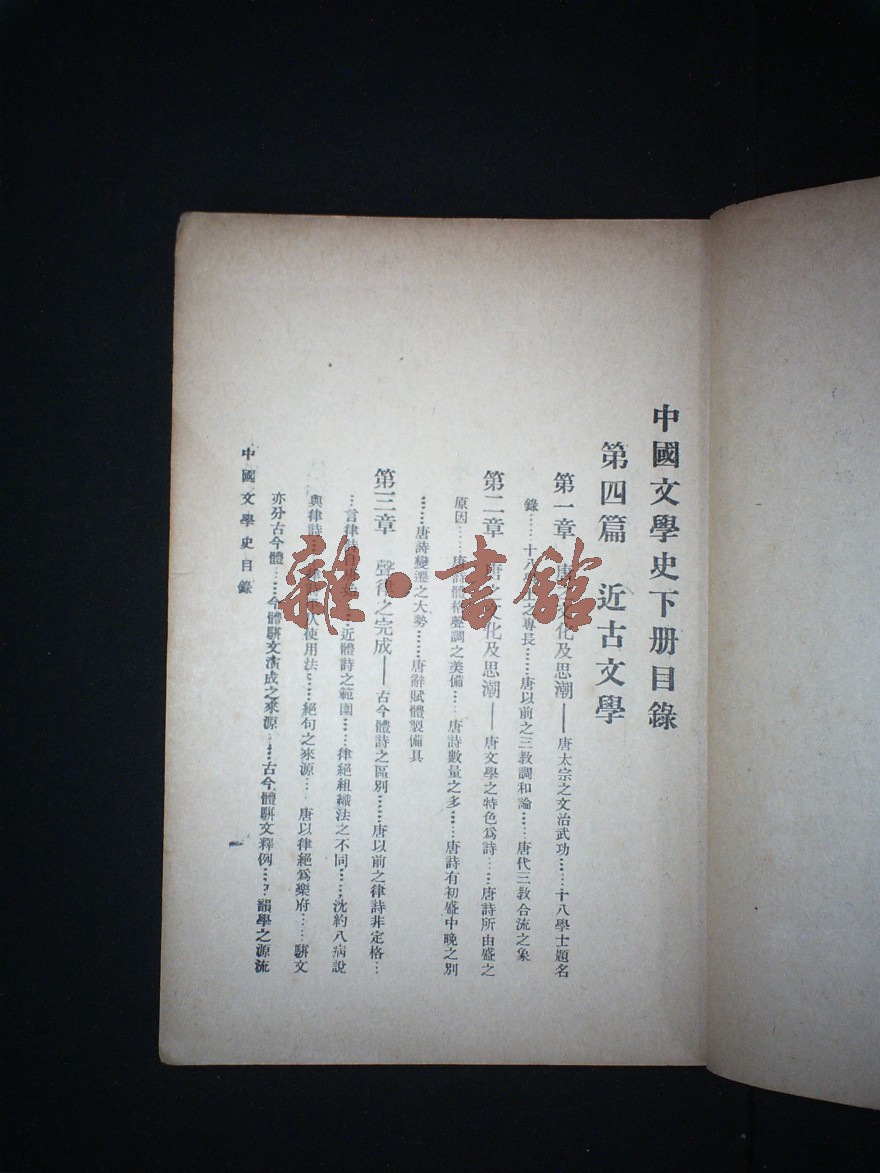 中國文學史下册目錄
第四篇 近古文學
第一章 文化及思潮——唐太宗之文治武功……十八學士題名
錄……十八學之專長……唐以前之三教調和論……唐代三教合流之象
第二章 唐之文化及思潮——唐文學之特色爲詩……唐詩所由盛之
原因……唐詩體格聲調之美備……唐詩數量之多……唐詩有初盛中晚之別
……唐詩變遷之大勢……唐辭賦體製備具
第三章 聲律之完成——古今體詩之區別……唐以前之律詩非定格…
…言律詩……近體詩之範圍……律絕組織法之不同……沈約八病說
與律詩……人使用法……絕句之來源……唐以律絕爲樂府……駢文
亦分古今體……今體駢文演成之來源……古今體駢文釋例……韻學之源流
中國文學史目錄
一
雜·書館